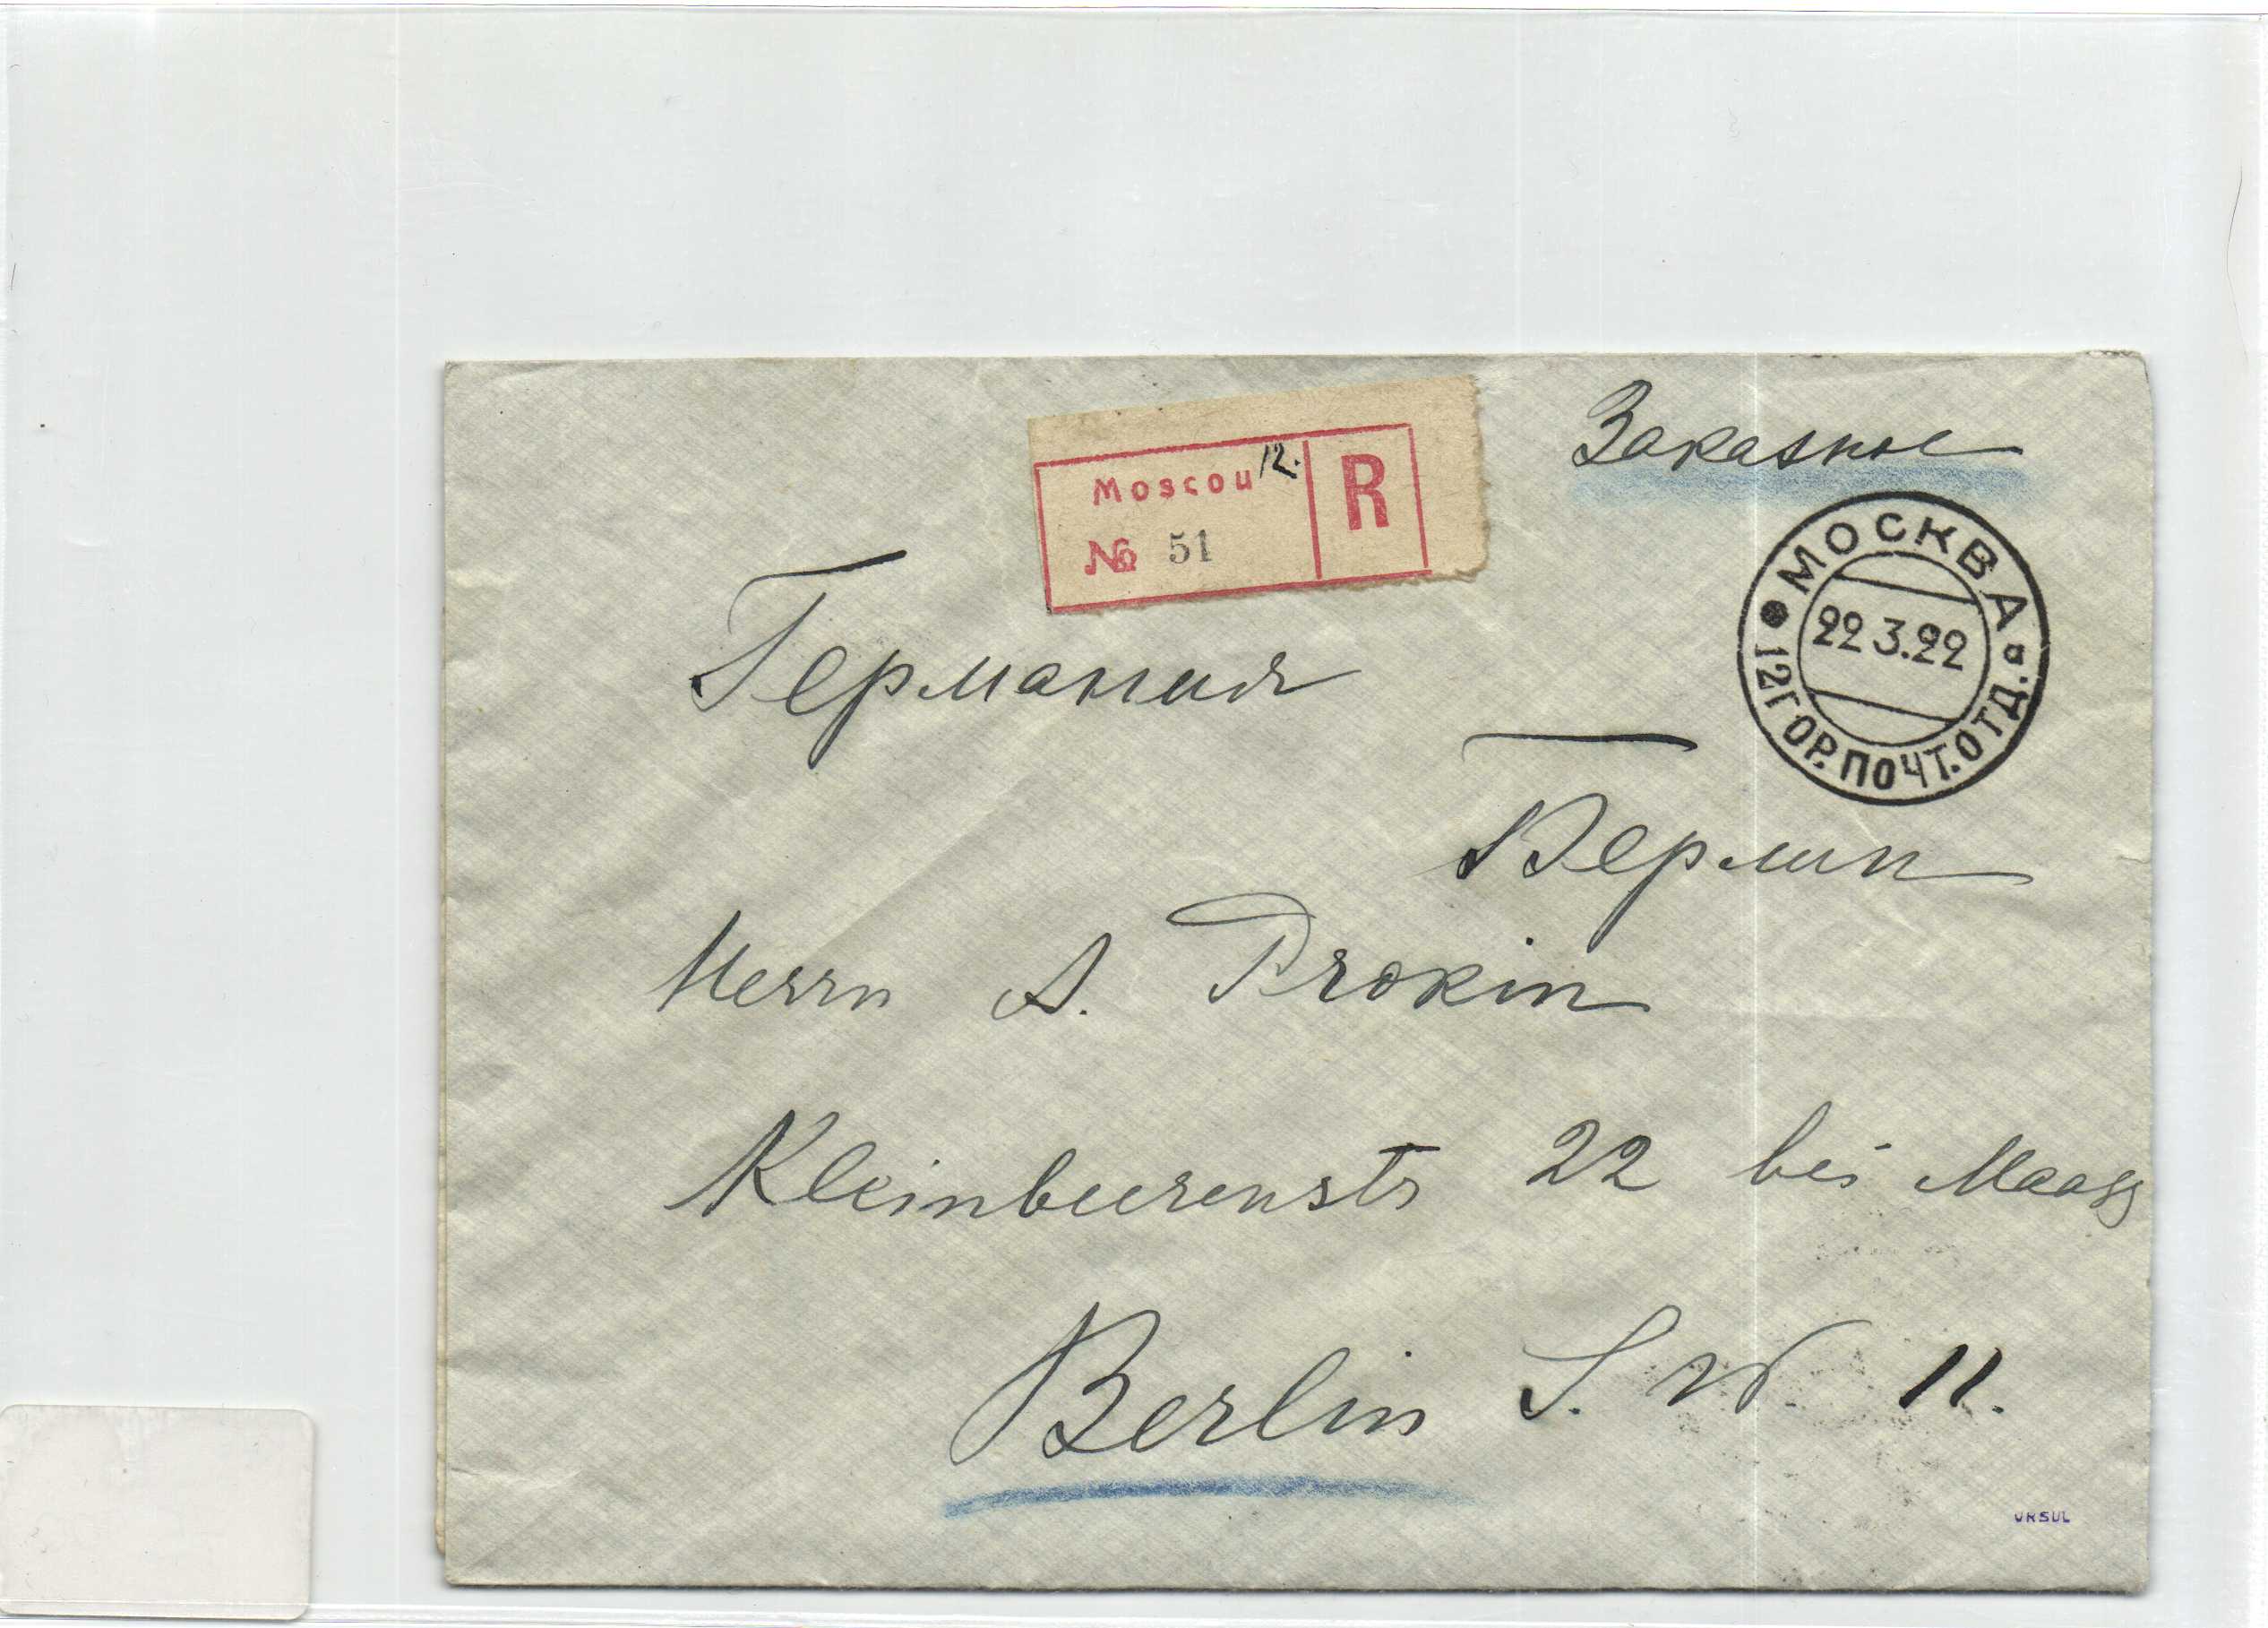 Заказное
Moscou 12.
№ 51
R
МОСКВА а
22 3.22
12 ГОР. ПОЧТ. ОТД.
Германия
Берлин
Herrn A. Prokin
Kleinbeerenstr 22 bei Maass
Berlin S. W 11.
URSUL